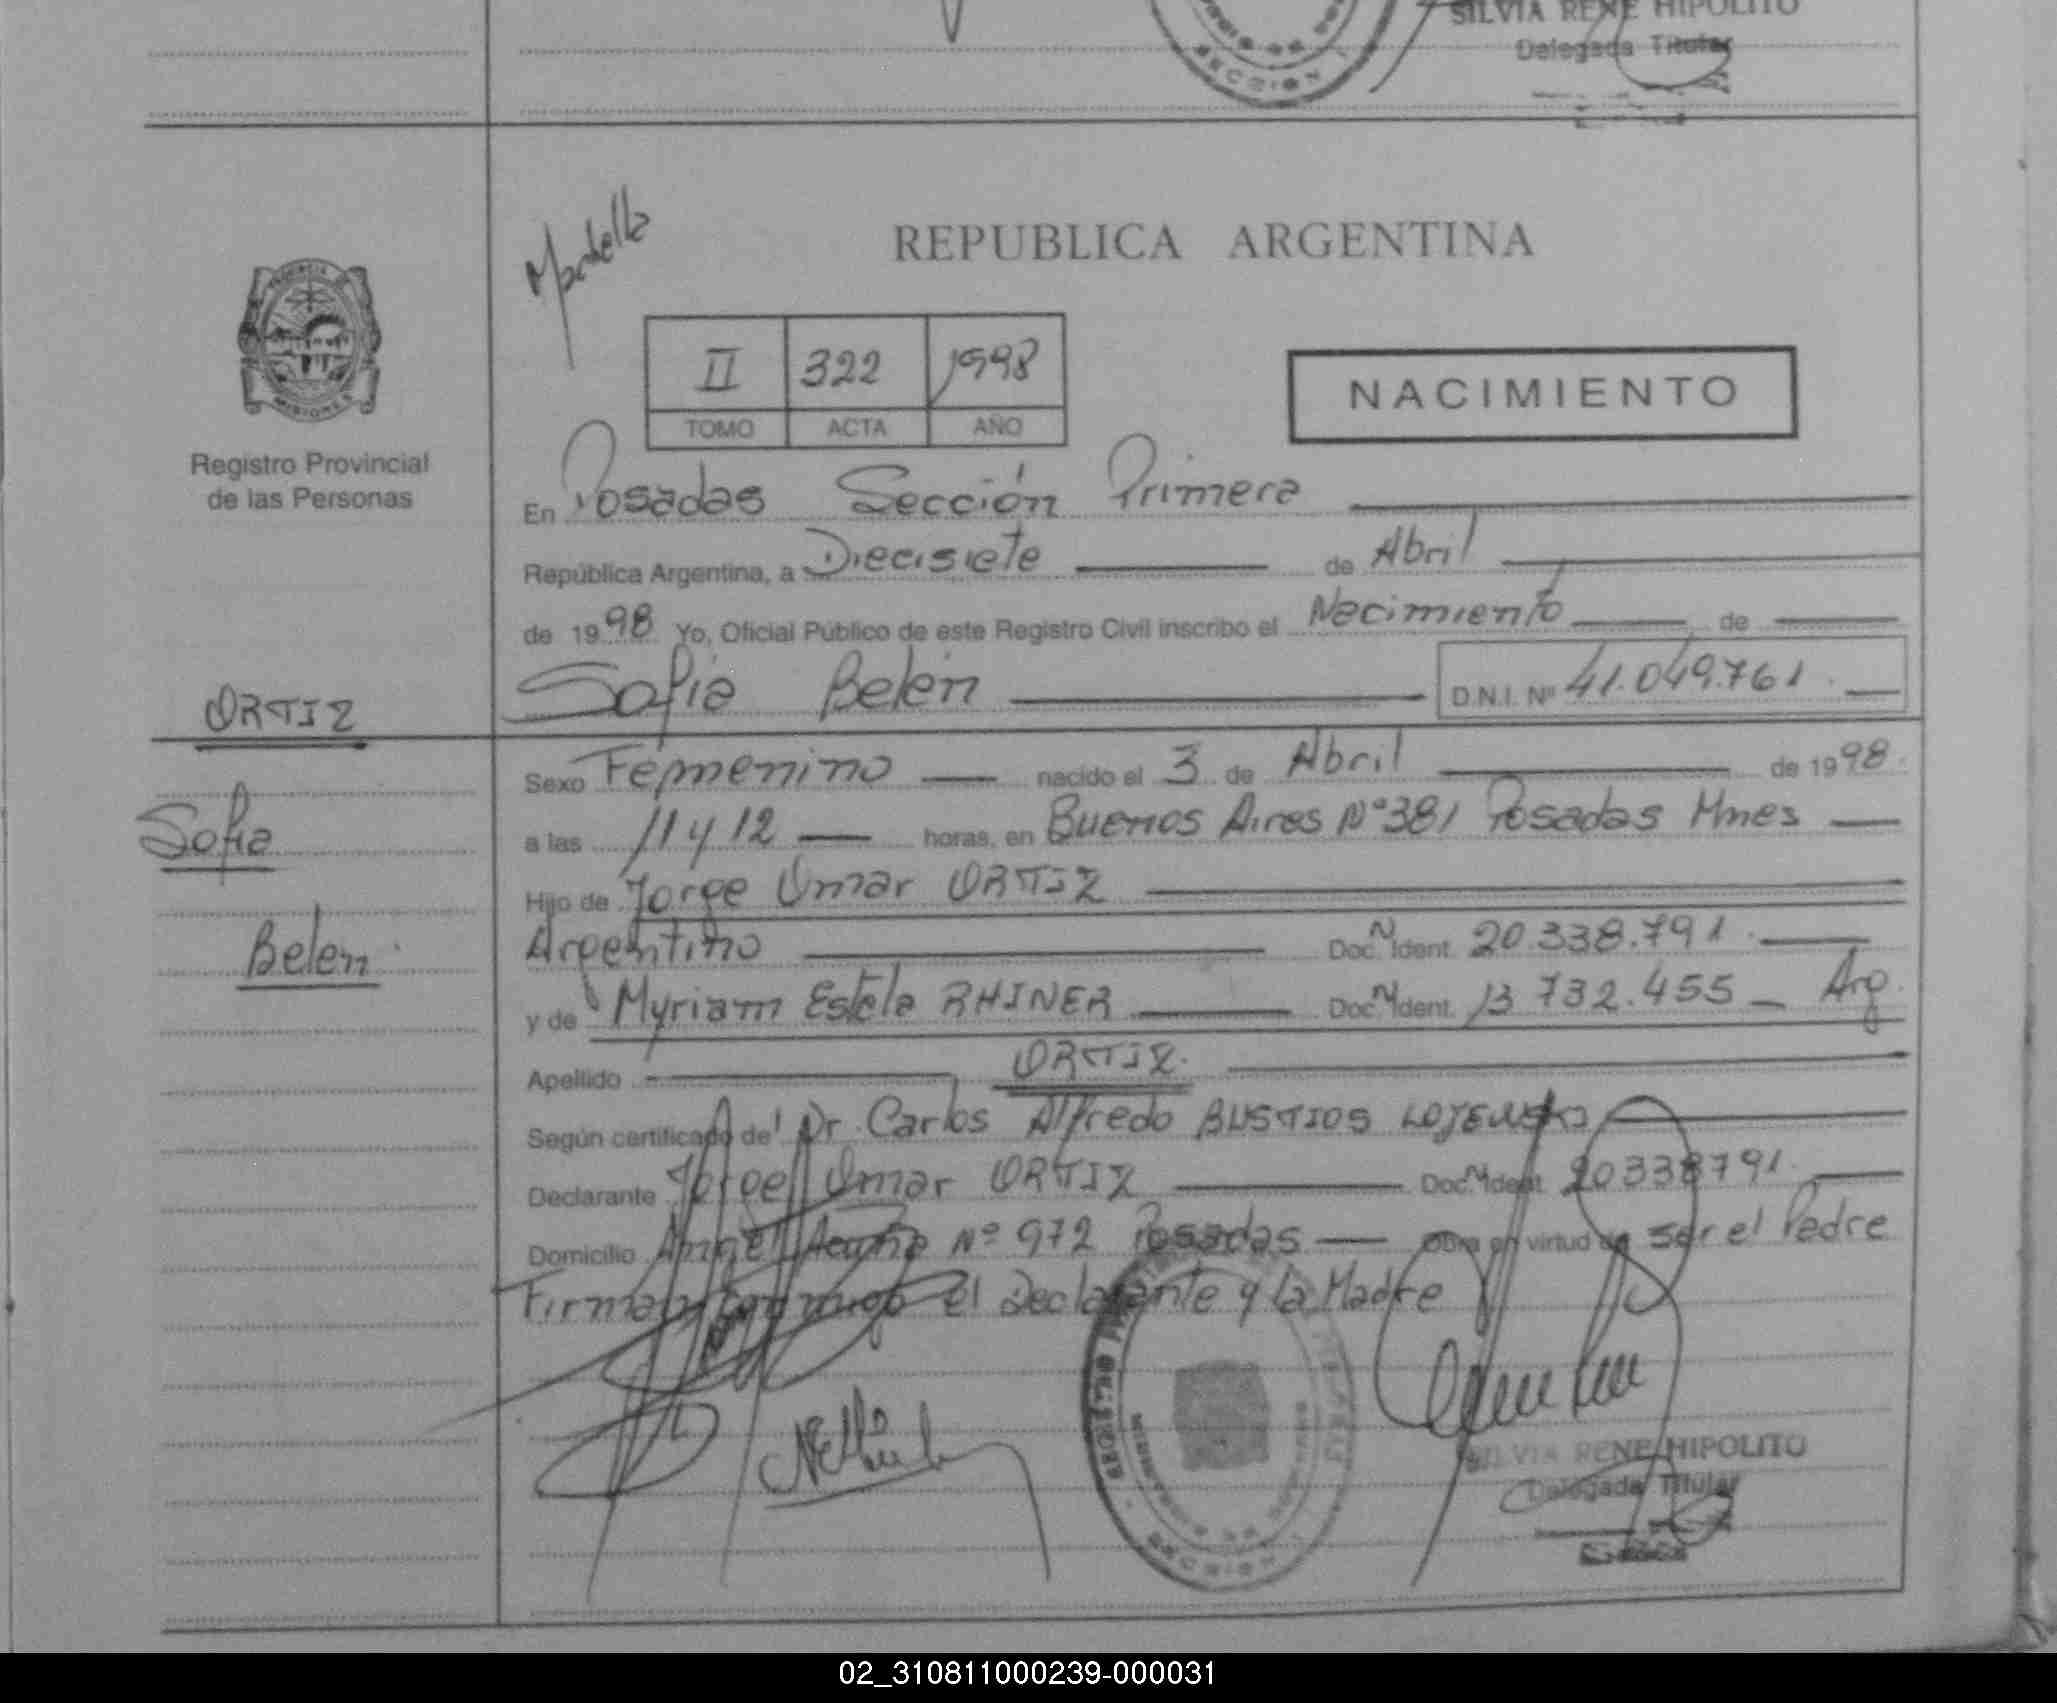 SILVIA RENE HIPOLITO
Delegada Titular
SECCION 1
REPUBLICA ARGENTINA
MISIONES
Registro Provincial
de las Personas
II 322 1998
TOMO ACTA AÑO
NACIMIENTO
En Posadas Sección Primera
República Argentina, a Diecisiete de Abril
de 1998 Yo, Oficial Público de este Registro Civil inscribo el Nacimiento de
Sofia Belén D.N.I. Nº 41.049.761
ORTIZ
Sofia
Belen
Sexo Femenino nacido el 3 de Abril de 1998.
a las 11 y 12 horas, en Buenos Aires Nº 381 Posadas Mnes
Hijo de Jorge Omar ORTIZ
Argentino Doc. N. Ident. 20.338.791
y de Myriam Estela RHINER Doc. N. Ident. 13.732.455 Arg.
Apellido ORTIZ.
Según certificado del Dr. Carlos Alfredo BUSTIOS
Declarante Jorge Omar ORTIZ Doc. N. Ident. 20338791.
Domicilio Angel Acuña Nº 972 Posadas Obra en virtud de ser el Padre
Firman conmigo el Declarante y la Madre
SILVIA RENE HIPOLITO
Delegada Titular
SECCION 1
02_310811000239-000031